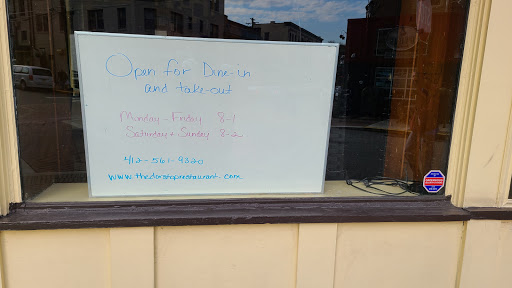 Open for Dine-in
and take-out
Monday - Friday 8-1
Saturday + Sunday 8-2
412-561-9320
www.thedorstoprestaurant.com